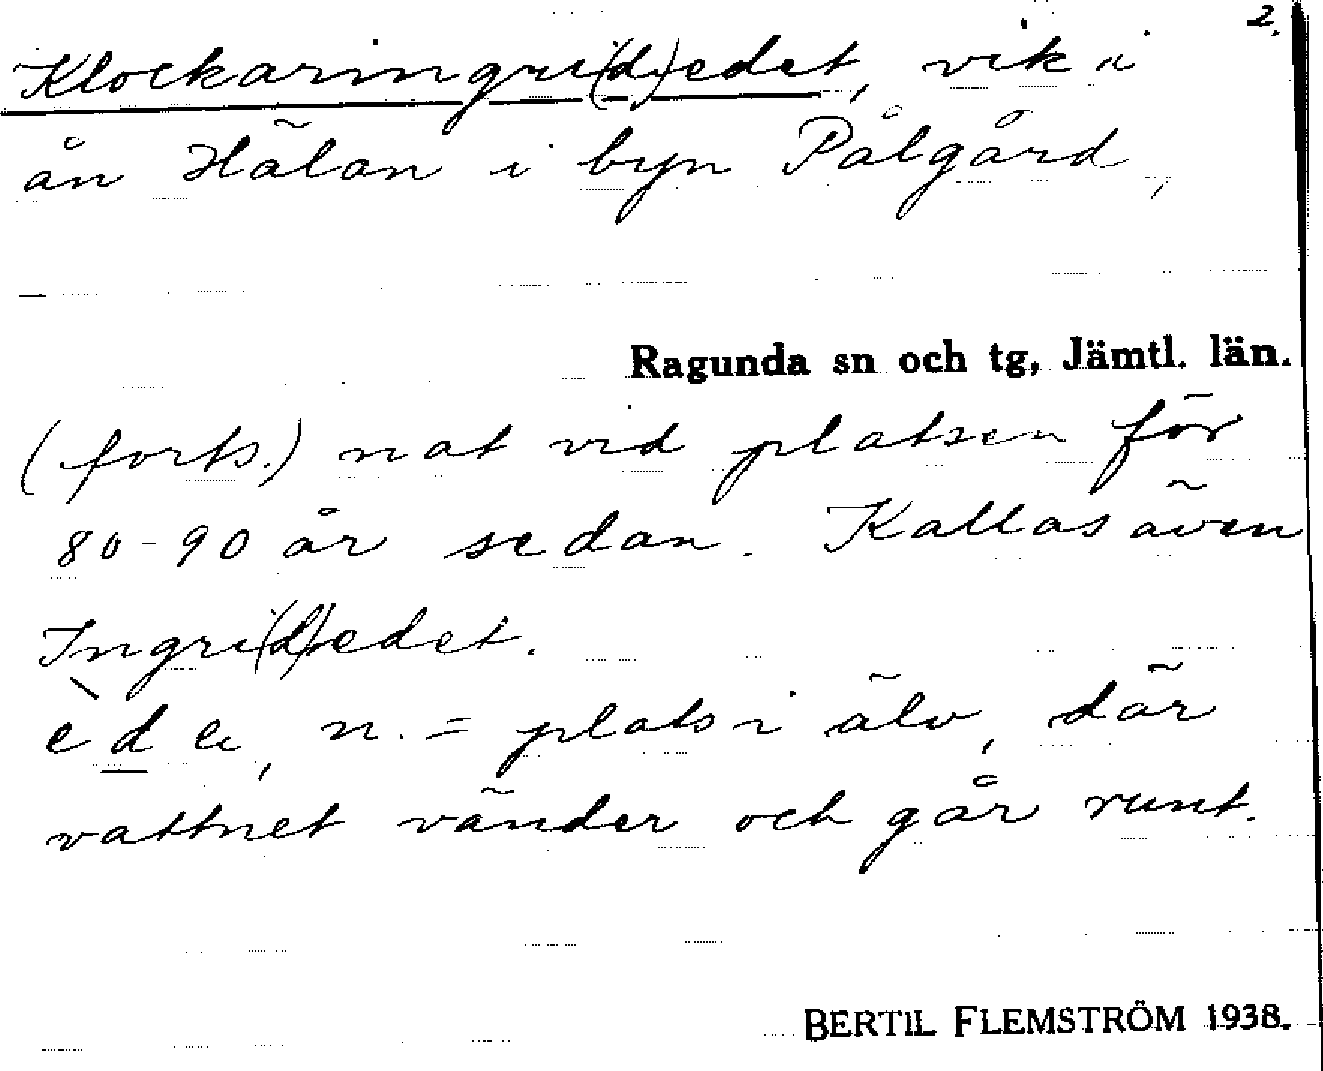 2.
Klockaringri(d)edet, vik i
ån Hälan i byn Pålgård,
Ragunda sn och tg, Jämtl. län.
(forts.) nat vid platsen för
80-90 år sedan. Kallas även
Ingri(d)edet.
ède, n. = plats i älv, där
vattnet vänder och går runt.
BERTIL FLEMSTRÖM 1938.